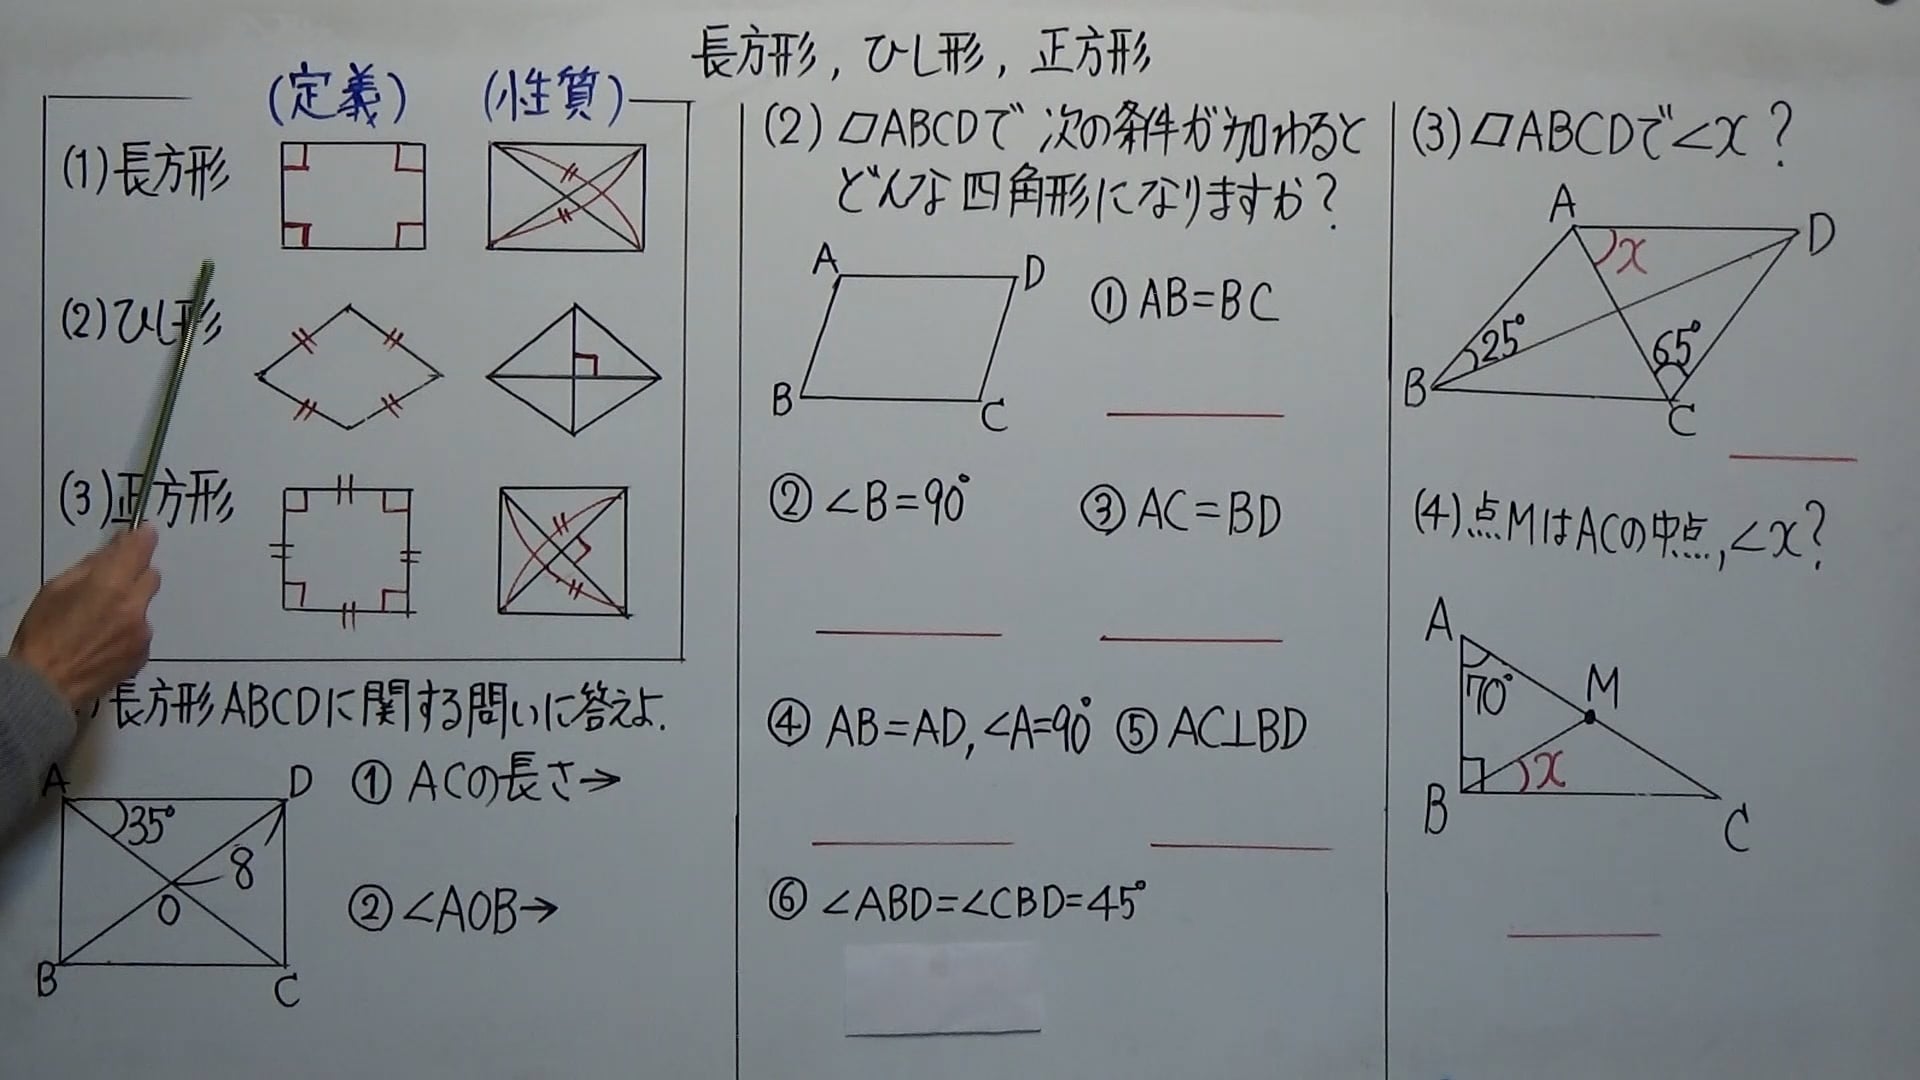 長方形, ひし形, 正方形
(定義) (性質)
(1)長方形
(2)ひし形
(3)正方形
長方形ABCDに関する問いに答えよ.
A D B C O 35° 8
① ACの長さ→
② ∠AOB→
(2) ▱ABCDで 次の条件が加わると
どんな四角形になりますか?
A D B C
① AB=BC
② ∠B=90°
③ AC=BD
④ AB=AD, ∠A=90°
⑤ AC⊥BD
⑥ ∠ABD=∠CBD=45°
(3) ▱ABCDで∠x?
A D B C x 25° 65°
(4) 点MはACの中点, ∠x?
A M B C 70° x